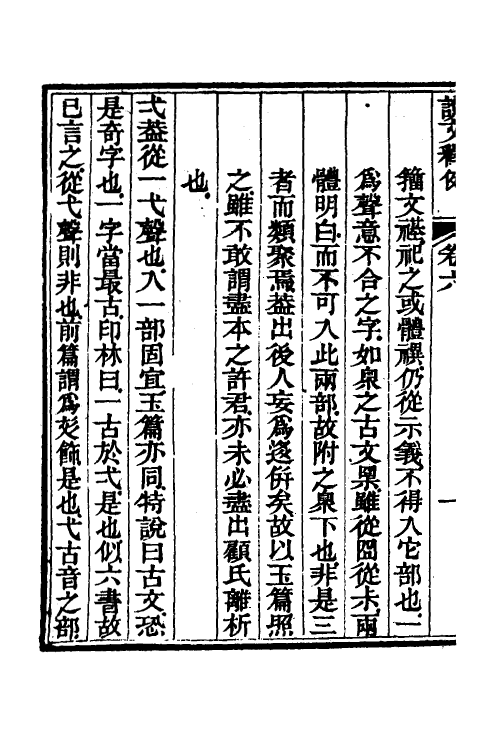 說文釋例 卷六 一
籀文禥祀之或體禩仍從示義不得入它部也一
爲聲意不合之字如㮚之古文㮚雖從囧從木兩
體明白而不可入此兩部故附之㮚下也非是三
者而類聚焉葢出後人妄爲迻併矣故以玉篇照
之雖不敢謂盡本之許君亦未必盡出顧氏離析
也
弌葢從一弋聲也入一部固宜玉篇亦同特說曰古文恐
是奇字也一字當最古印林曰一古於弌是也似六書故
已言之從弋聲則非也前篇謂爲彣飾是也弋古音之部